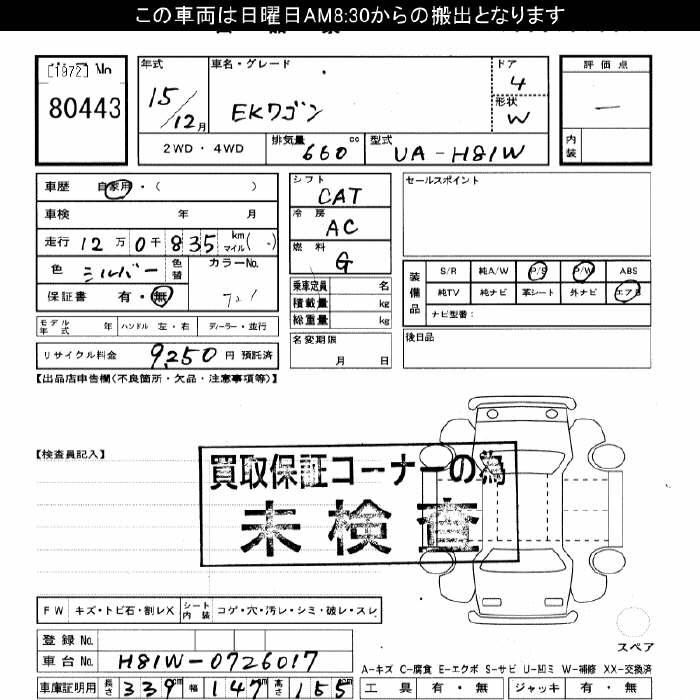 この車両は日曜日AM8:30からの搬出となります
[1972] No
80443
年式
15/12月
車名・グレード
EKワゴン
ドア
4
形状
W
評価点
―
内装
2WD ・ 4WD
排気量
660 cc
型式
UA-H81W
車歴 自家用・( )
車検 年 月
走行 12万0千835 km マイル( )
色 シルバー 色替 カラーNo.
保証書 有・無
シフト
CAT
冷房
AC
燃料
G
乗車定員 名
積載量 kg
総重量 kg
セールスポイント
装備品
S/R 純A/W P/S P/W ABS
純TV 純ナビ 革シート 外ナビ エアB
ナビ型番：
モデル年式 年 ハンドル 左・右 ディーラー・並行
リサイクル料金 9,250 円 預託済
名変期限
月 日
後日品
【出品店申告欄(不良箇所・欠品・注意事項等)】
【検査員記入】
買取保証コーナーの為
未検査
FW キズ・トビ石・割レX シート内装 コゲ・穴・汚レ・シミ・破レ・スレ
登録No.
車台No. H81W-0726017
車庫証明用 長さ 339cm 幅 147cm 高さ 155cm
スペア
A-キズ C-腐食 E-エクボ S-サビ U-凹ミ W-補修 XX-交換済
工具 有・無 ジャッキ 有・無